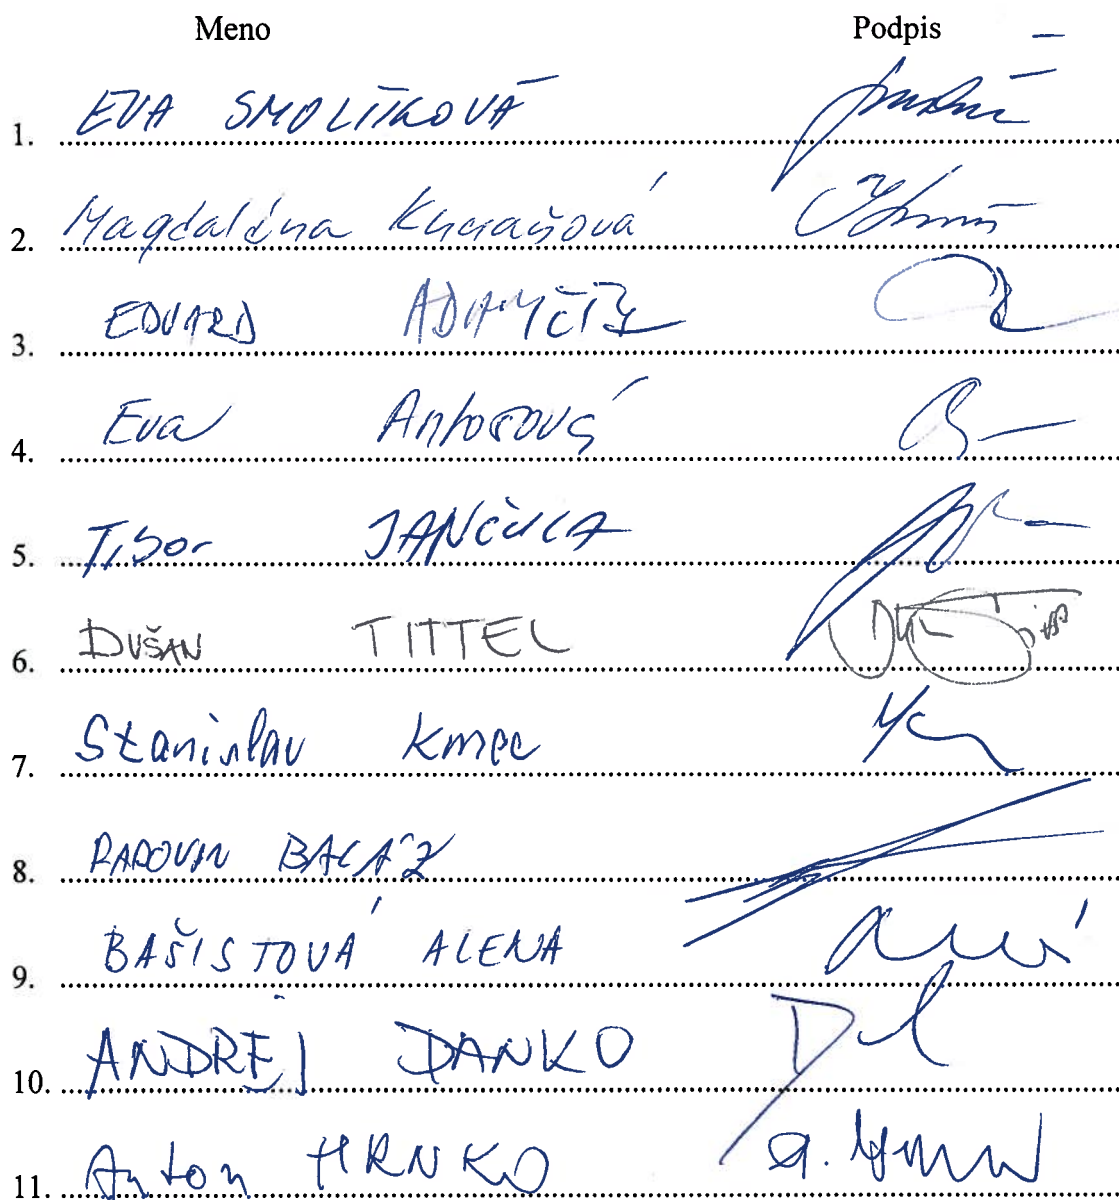 Meno Podpis
1. EVA SMOLÍKOVÁ
2. Magdaléna Kuciaňová
3. EDUARD ADAMČÍK
4. Eva Antošová
5. Tibor JANČULA
6. DUŠAN TITTEL
7. Stanislav Kmec
8. RADOVAN BALÁŽ
9. BAŠISTOVÁ ALENA
10. ANDREJ DANKO
11. Anton HRNKO